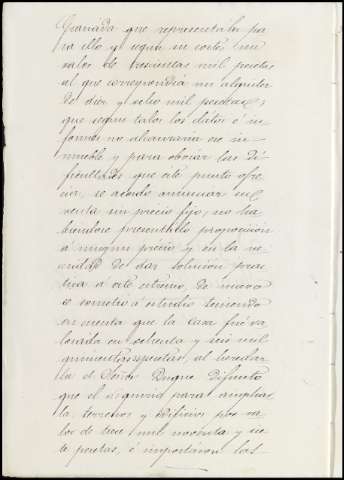 Granada que representaba pa
ra ello y segun su coste, un
valor de trescientas mil pesetas
al que correspondia un alquiler
de diez y ocho mil pesetas;
que segun todos los datos é in
formes no alcanzaria ese in-
mueble y para obviar las di-
ficultades que este punto ofre
cia, se acordó anunciar su
venta sin precio fijo; no ha
biendose presentado proposicion
á ningun precio y en la ne
cesidad de dar solucion prac
tica á este extremo, de nuevo
se sometió á estudio teniendo
en cuenta que la casa fué va
lorada en ochenta y seis mil
quinientas pesetas, al heredar
la el Señor Duque difunto
que él adquirió para ampliar
la terrenos y edificios por va
lor de trece mil noventa y sie
te pesetas, é importaron las